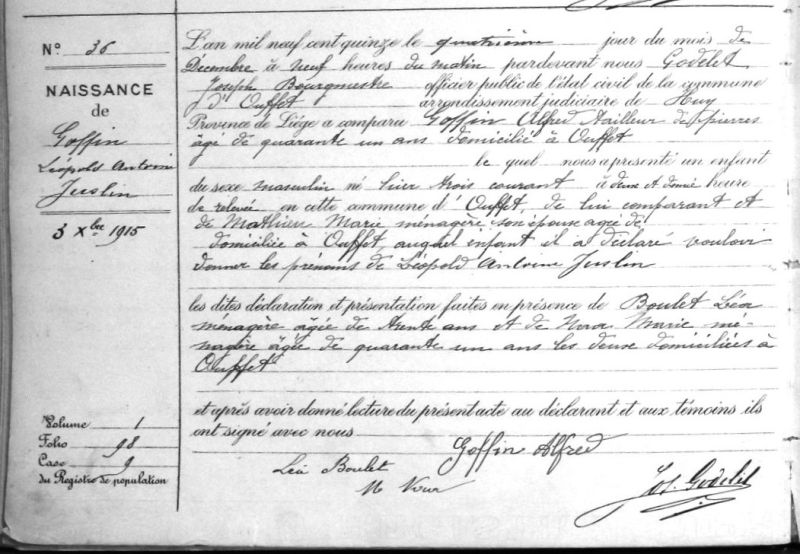 N° 36
NAISSANCE
de
Goffin
Léopold Antoine
Juslin
3 Xbre 1915
Volume 1
Folio 98
Case 9
du Registre de population
L'an mil neuf cent quinze le quatrième jour du mois de
Décembre à neuf heures du matin pardevant nous Godelet
Joseph Bourgmestre officier public de l'état civil de la commune
d'Ouffet arrondissement judiciaire de Huy
Province de Liége a comparu Goffin Alfred tailleur de pierres
âgé de quarante un ans domicilié à Ouffet
le quel nous a présenté un enfant
du sexe masculin né hier trois courant à deux et demie heure
de relevée en cette commune d'Ouffet, de lui comparant et
de Mathieu Marie ménagère son épouse agée de
domiciliée à Ouffet, auquel enfant il a déclaré vouloir
donner les prénoms de Léopold Antoine Juslin
les dites déclaration et présentation faites en présence de Boulet Léa
ménagère agée de trente ans et de Marie mé-
nagère âgée de quarante un ans les deux domiciliées à
Ouffet
et après avoir donné lecture du présent acte au déclarant et aux témoins ils
ont signé avec nous
Goffin Alfred
Léa Boulet
M
Jos. Godelet